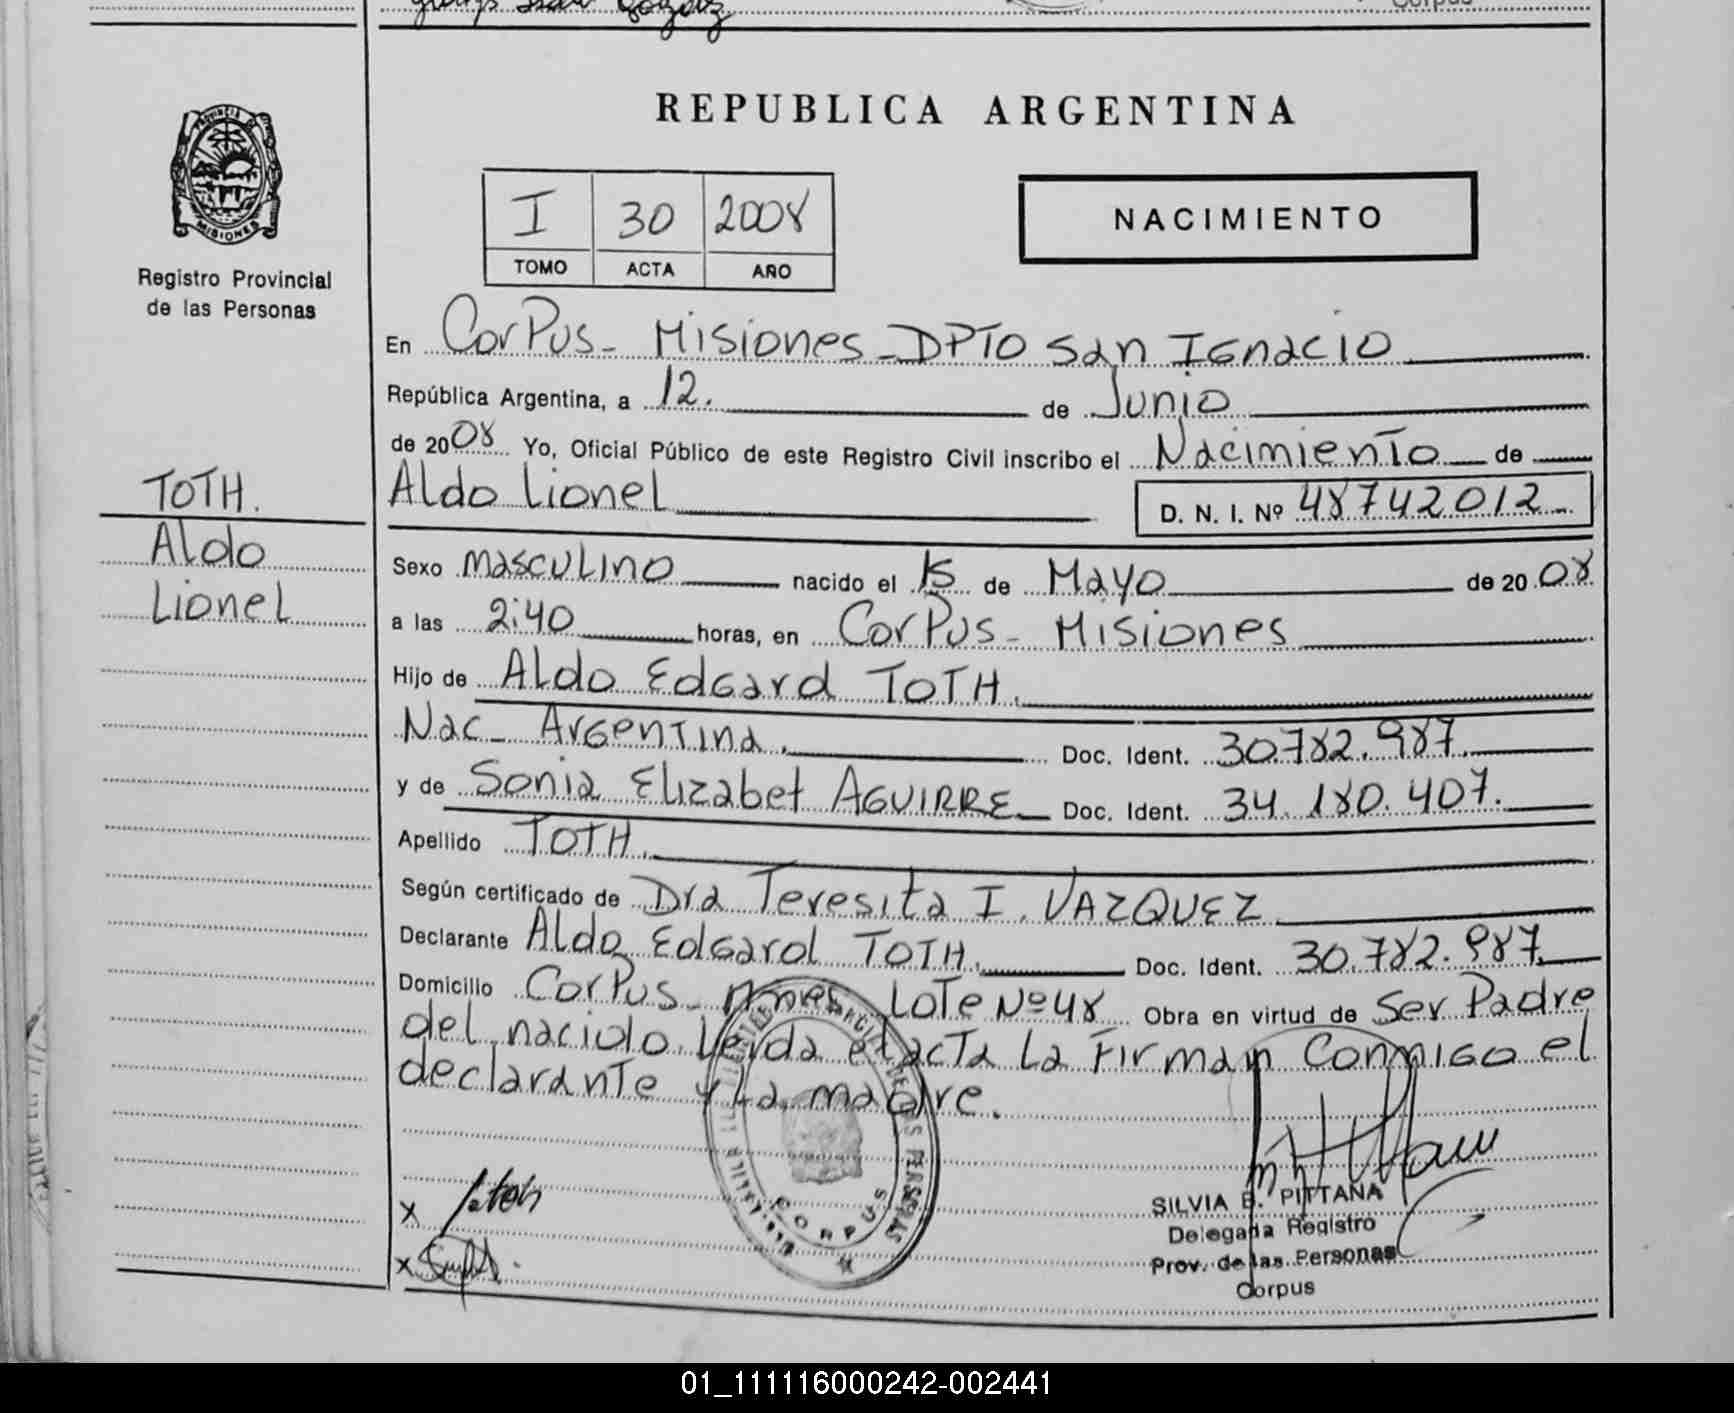 Corpus
REPUBLICA ARGENTINA
PROVINCIA DE
MISIONES
Registro Provincial
de las Personas
I 30 2008
TOMO ACTA AÑO
NACIMIENTO
En Corpus - Misiones - DPTO San Ignacio
República Argentina, a 12. de Junio
de 2008 Yo, Oficial Público de este Registro Civil inscribo el Nacimiento de
TOTH.
Aldo
Lionel
Aldo Lionel D. N. I. Nº 48742012
Sexo Masculino nacido el 15 de Mayo de 2008
a las 2:40 horas, en Corpus - Misiones
Hijo de Aldo Edgard TOTH.
Nac - Argentina. Doc. Ident. 30.782.987.
y de Sonia Elizabet AGUIRRE Doc. Ident. 34.180.407.
Apellido TOTH.
Según certificado de Dra Teresita I. VAZQUEZ
Declarante Aldo Edgard TOTH. Doc. Ident. 30.782.987.
Domicilio Corpus - Mnes Lote Nº 48 Obra en virtud de Ser Padre
del nacido. Leida el acta La Firman Conmigo el
declarante y La madre.
X
X
CORPUS
SILVIA B. PITTANA
Delegada Registro
Prov. de las Personas
Corpus
01_111116000242-002441